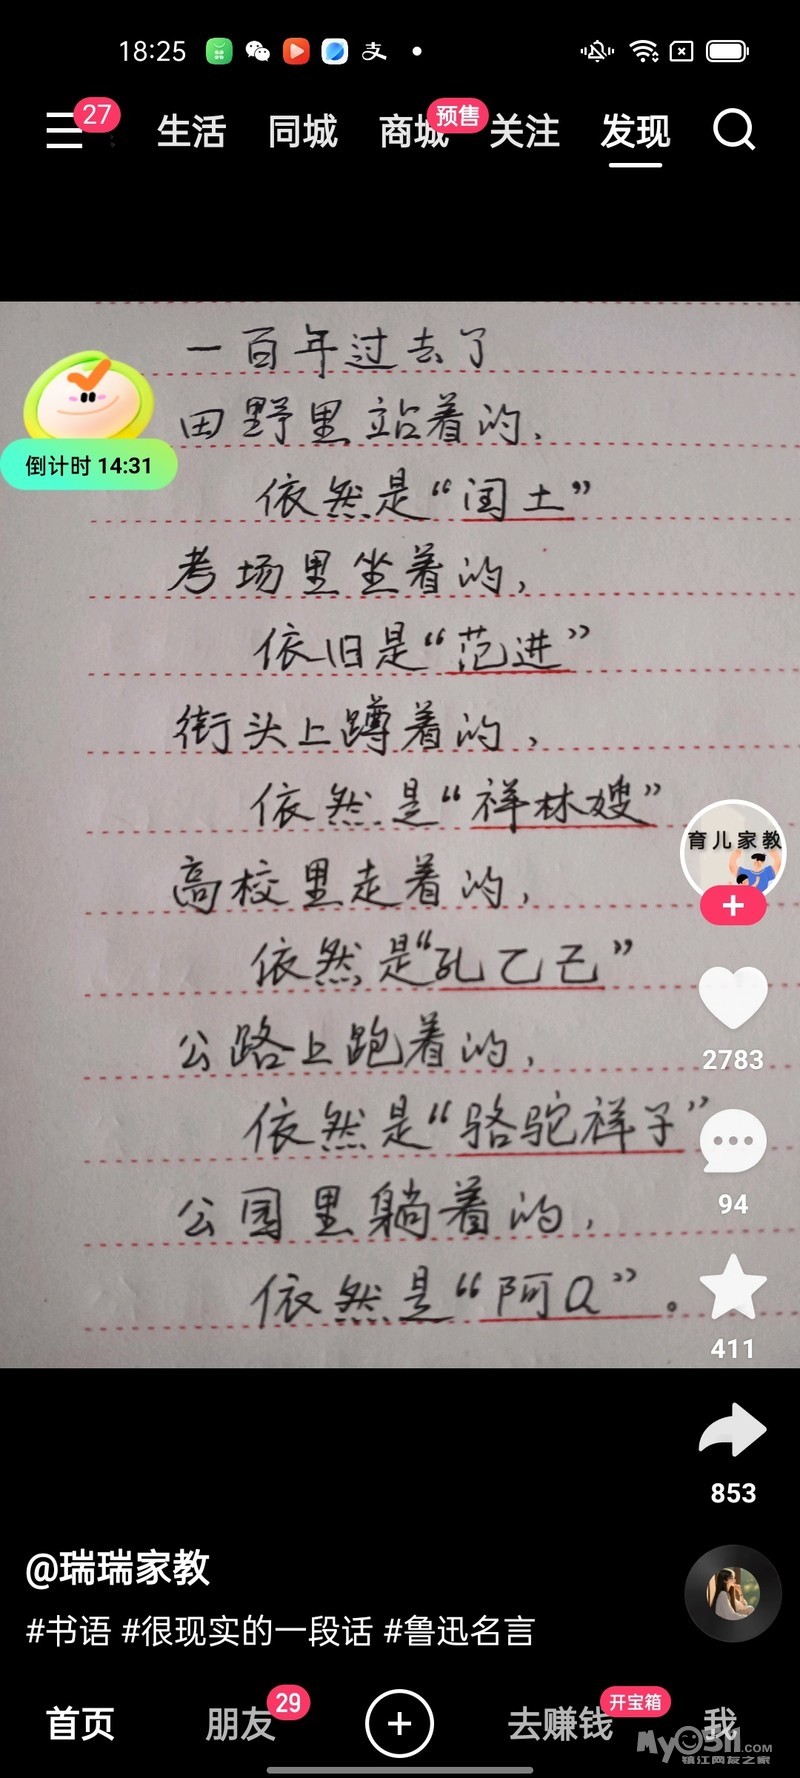 18:25
27
生活 同城 商城 预售 关注 发现
一百年过去了
倒计时 14:31
田野里站着的，
依然是“闰土”
考场里坐着的，
依旧是“范进”
街头上蹲着的，
依然是“祥林嫂”
育儿家教
高校里走着的，
依然是“孔乙己”
2783
公路上跑着的，
依然是“骆驼祥子”
94
公园里躺着的，
依然是“阿Q”。
411
853
@瑞瑞家教
#书语 #很现实的一段话 #鲁迅名言
首页 朋友 29 去赚钱 开宝箱 我
My0511.COM
镇江网友之家